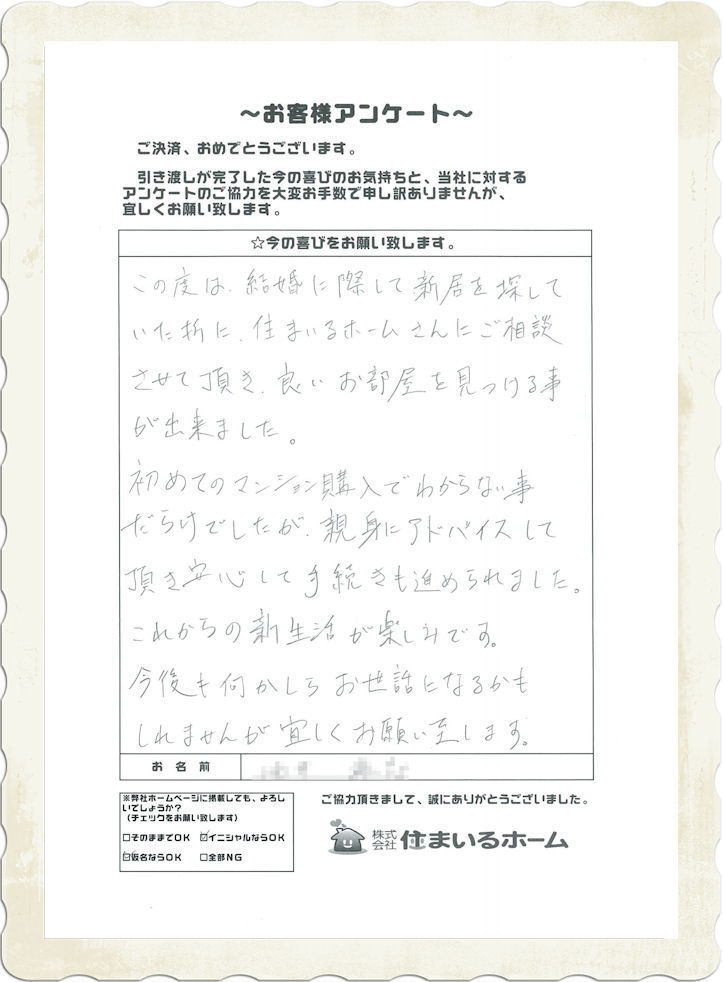 ～お客様アンケート～
ご決済、おめでとうございます。
引き渡しが完了した今の喜びのお気持ちと、当社に対する
アンケートのご協力を大変お手数で申し訳ありませんが、
宜しくお願い致します。
☆今の喜びをお願い致します。
この度は、結婚に際して新居を探して
いた折に、住まいるホームさんにご相談
させて頂き、良いお部屋を見つける事
が出来ました。
初めてのマンション購入でわからない事
だらけでしたが、親身にアドバイスして
頂き安心して手続きも進められました。
これからの新生活が楽しみです。
今後も何かしらお世話になるかも
しれませんが宜しくお願い至します。
お名前
※弊社ホームページに掲載しても、よろし
いでしょうか？
（チェックをお願い致します）
□そのままでOK ☑イニシャルならOK
☑仮名ならOK □全部NG
ご協力頂きまして、誠にありがとうございました。
株式会社 住まいるホーム